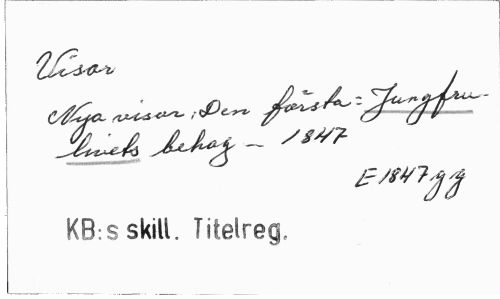 Visor
Nya visor; Den första: Jungfru-
livets behag – 1847
E 1847 gg
KB:s skill. Titelreg.